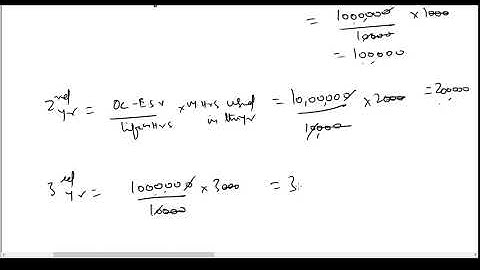 = 1000,000 / 10000 × 1000
= 100000
2nd yr = OC-ESV / Life in Hrs × M Hrs used in the yr = 10,00,000 / 10,000 × 2000 = 20000
3rd yr = 1000,000 / 10000 × 3000 = 3